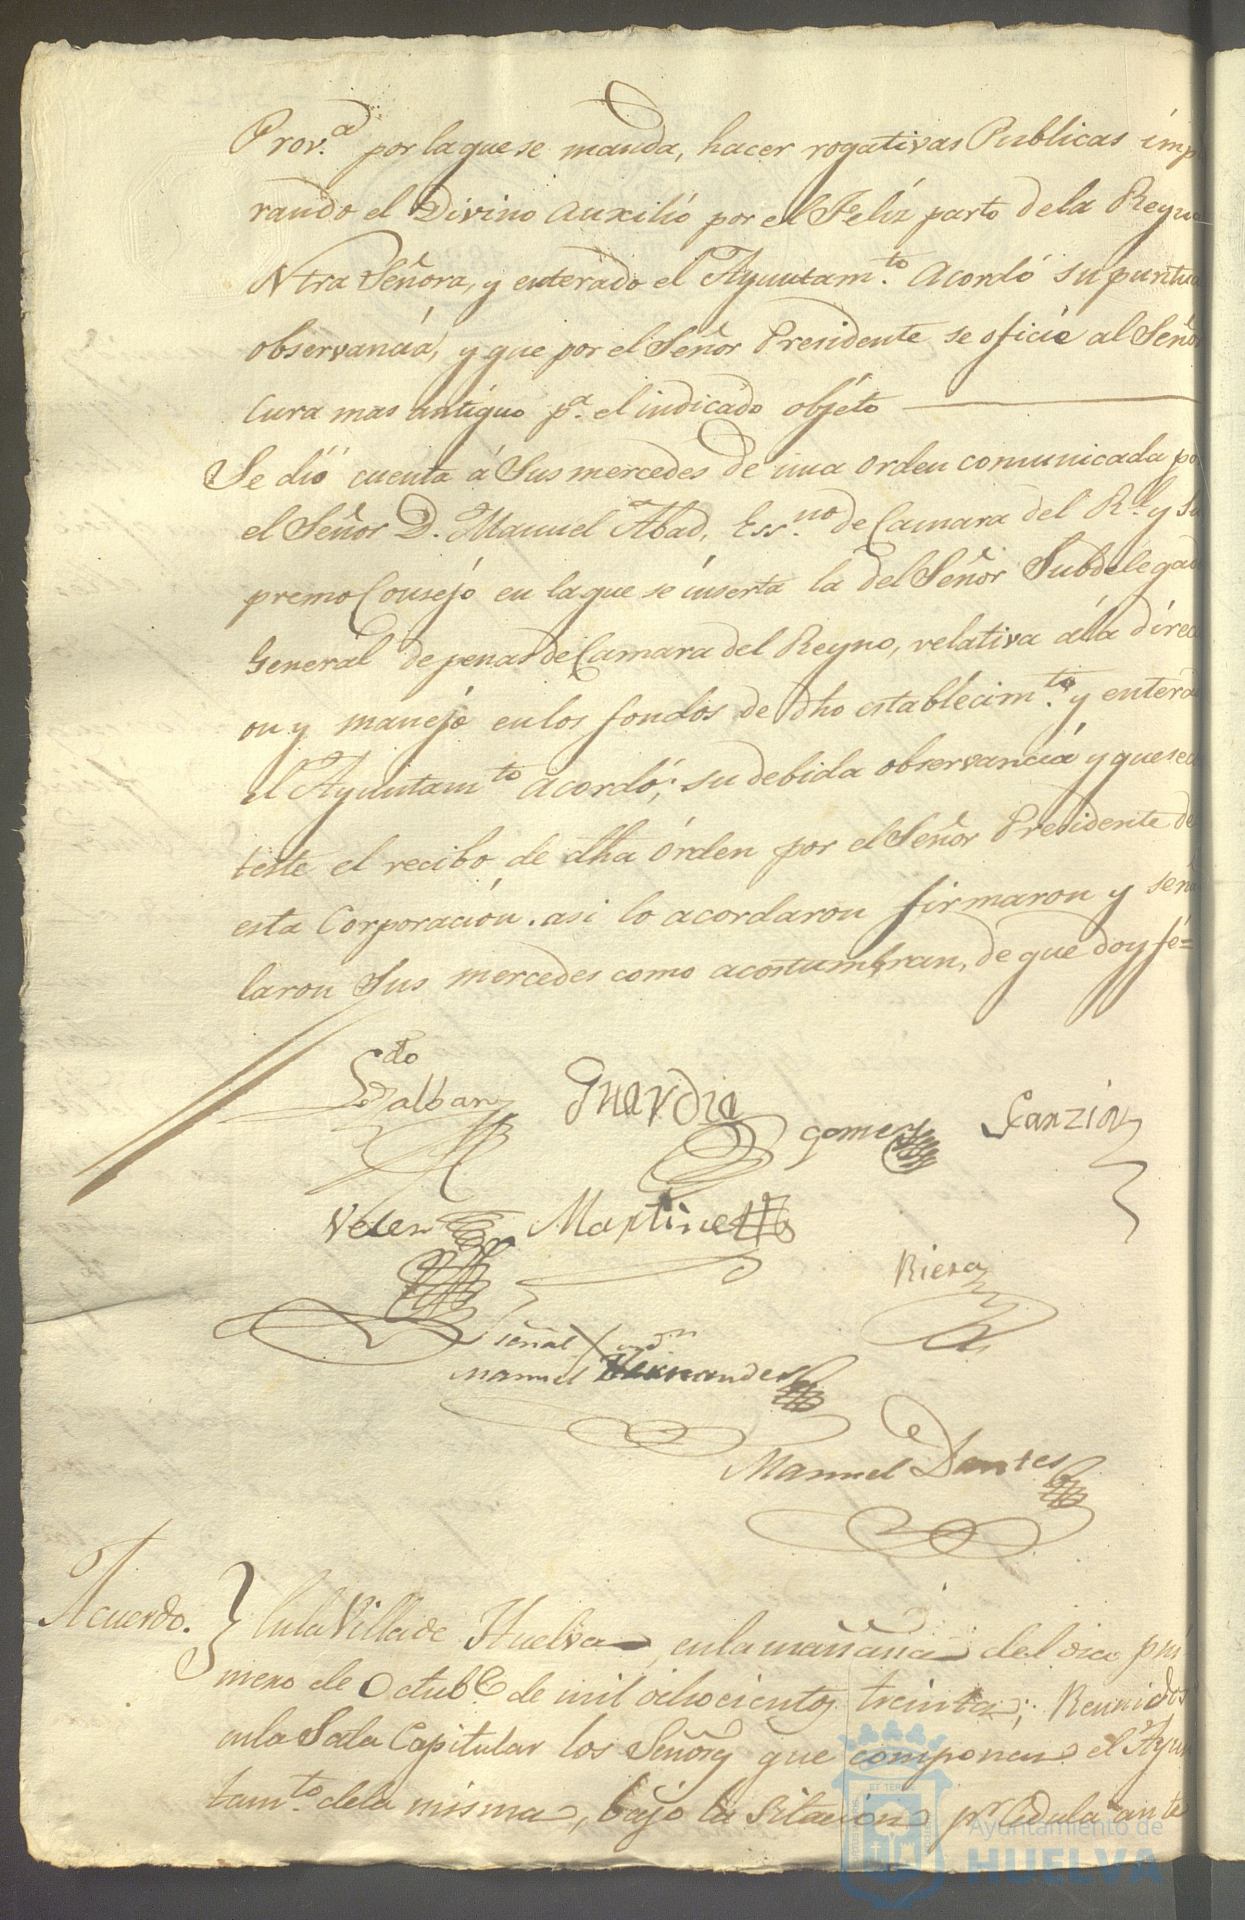 Prov.ª por la que se manda, hacer rogativas Publicas imp
rando el Divino Auxilio por el Feliz parto de la Reyna
Ntra Señora, y enterado el Ayuntam.to Acordó su puntua
observancia, y que por el Señor Presidente se oficie al Señor
Cura mas antiguo p.ª el indicado objéto
Se dió cuenta á Sus mercedes de una orden comunicada po
el Señor D. Manuel Abad, Ess.no de Camara del R.l y Su
premo Consejo en la que se inserta la del Señor Subdelegad
General de penas de Camara del Reyno, relativa á la direc
on y manejo en los fondos de dho establecim.to y entera
el Ayuntam.to acordó; su debida observancia y que se c
teste el recibo de dha órden por el Señor Presidente de
esta Corporación. asi lo acordaron firmaron y seña
laron Sus mercedes como acostumbran, de que doy fé=
Ldo
Zalban Guardia Gomez
Velez Martinez
Riera
señal X
Manuel Hernandez
Manuel Dantes
Acuerdo. En la Villa de Huelva, en la mañana del dia pri
mero de Octub.e de mil ochocientos treinta; Reunidos
en la Sala Capitular los Señores que componen el Ayun
tam.to de la misma, bajo la sitacion p.r Cedula ante
Ayuntamiento de
HUELVA